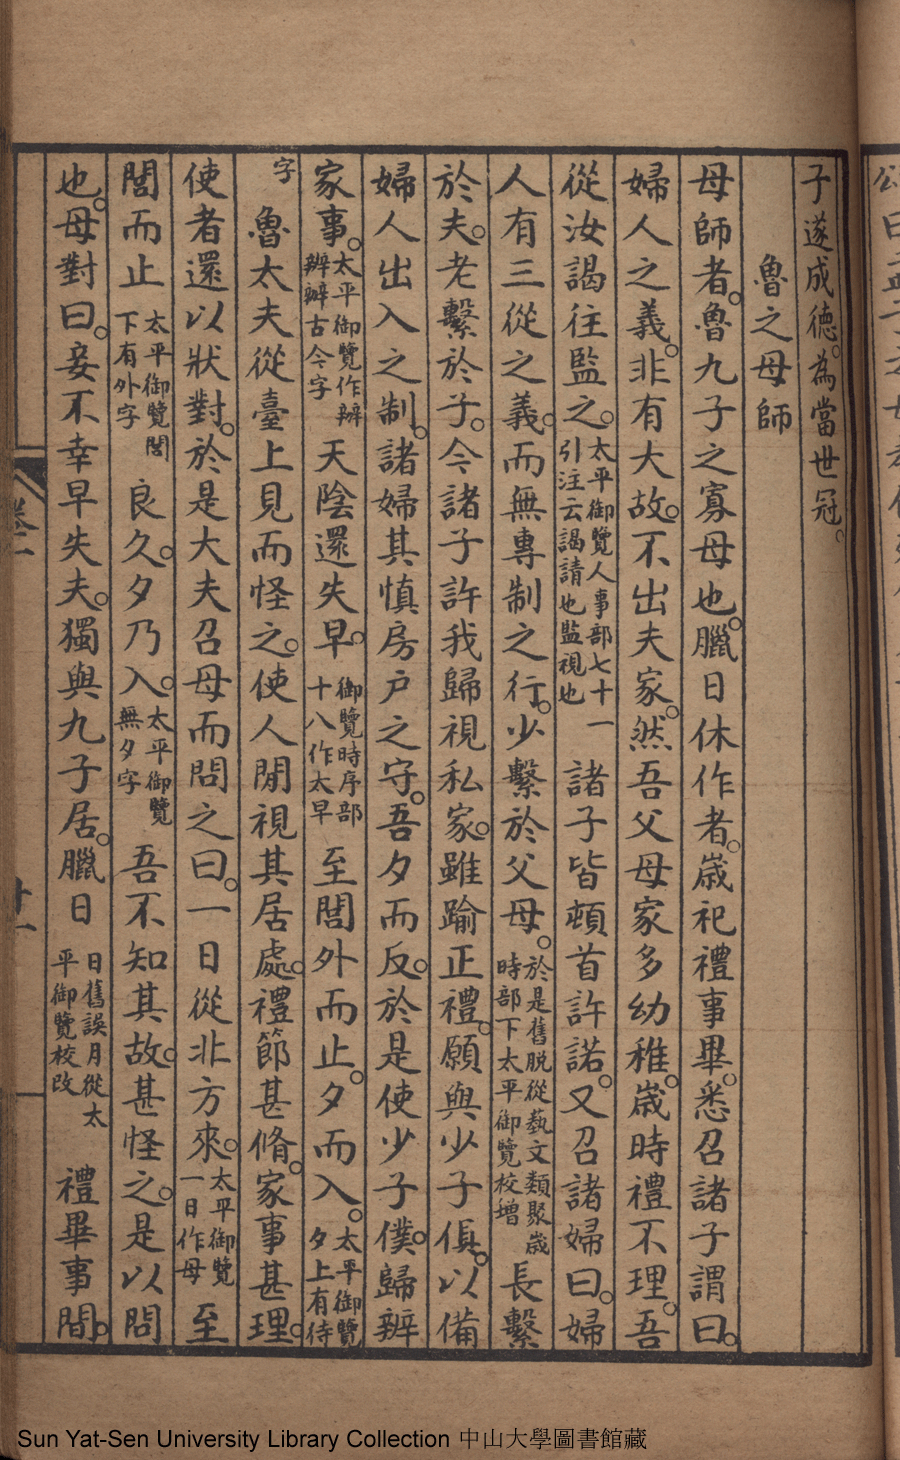 子遂成德。為當世冠。
魯之母師
母師者。魯九子之寡母也。臘日休作者。歲祀禮事畢。悉召諸子謂曰。
婦人之義。非有大故。不出夫家。然吾父母家多幼稚。歲時禮不理。吾
從汝謁往監之。太平御覽人事部七十一引注云謁請也監視也諸子皆頓首許諾。又召諸婦曰。婦
人有三從之義。而無專制之行。少繫於父母。於是舊脫從藝文類聚歲時部下太平御覽校增長繫
於夫。老繫於子。今諸子許我歸視私家。雖踰正禮。願與少子俱。以備
婦人出入之制。諸婦其慎房戶之守。吾夕而反。於是使少子僕。歸辨
家事。太平御覽作辦辨辦古今字天陰還失早。御覽時序部十八作太早至閭外而止。夕而入。太平御覽夕上有待
字魯大夫從臺上見而怪之。使人閒視其居處。禮節甚脩。家事甚理。
使者還以狀對。於是大夫召母而問之曰。一日從北方來。太平御覽一日作母至
閭而止太平御覽閭下有外字良久。夕乃入。太平御覽無夕字吾不知其故。甚怪之。是以問
也。母對曰。妾不幸早失夫。獨與九子居。臘日日舊誤月從太平御覽校改禮畢事間。
Sun Yat-Sen University Library Collection 中山大學圖書館藏